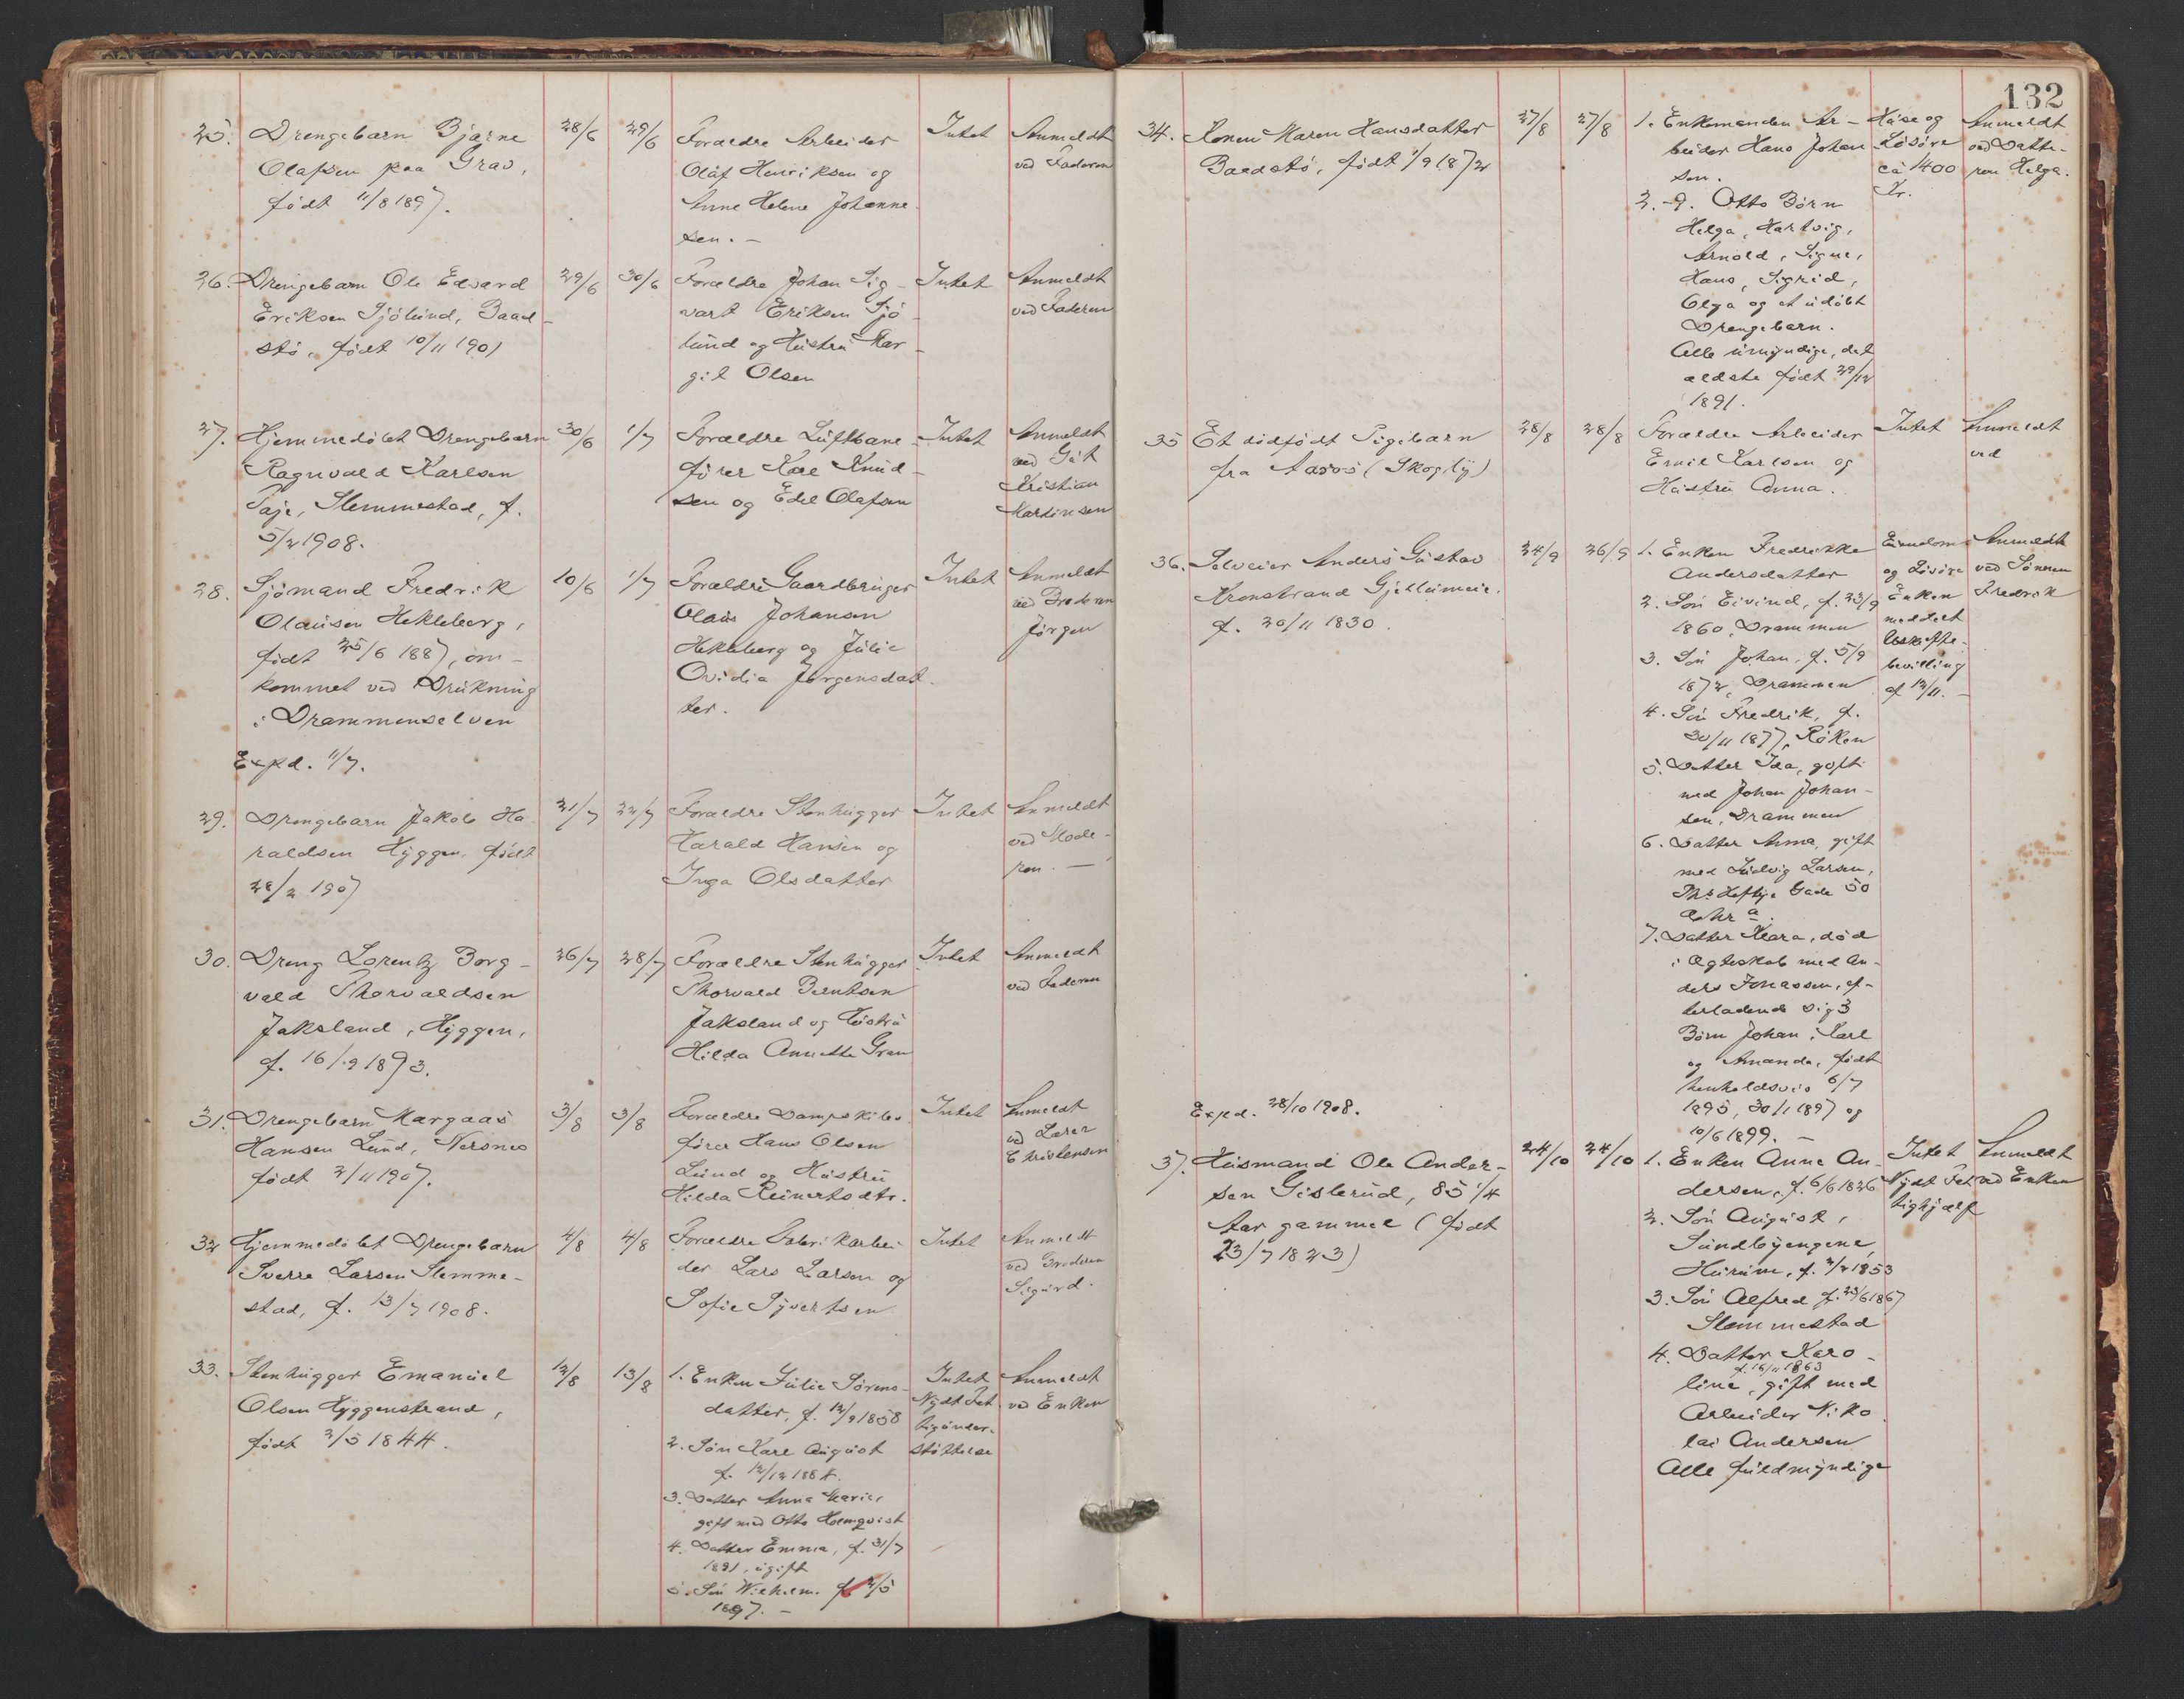 132
25. Drengebarn Bjarne
Olafsen paa Grav,
født 11/8 1897.
28/6
29/6
Forældre Arbeider
Olaf Henriksen og
Anne Helene Johanne-
sen. -
Intet
Anmeldt
ved Faderen
26. Drengebarn Ole Edvard
Eriksen Sjölund, Baad-
stö, født 10/11 1901
29/6
30/6
Forældre Johan Sig-
vart Eriksen Sjö-
lund og Hustru Mar-
git Olsen
Intet
Anmeldt
ved Faderen
27. Hjemmedöbt Drengebarn
Ragnvald Karlsen
Slemmestad, f.
5/2 1908.
30/6
1/7
Forældre Luftbane-
förer Karl Knud-
sen og Edel Olafsen
Intet
Anmeldt
ved
Kristian
Martinsen
28. Sjömand Fredrik
Olausen Hekleberg,
født 25/6 1887, om-
kommet ved Drukning
i Drammenselven
Expd. 11/7.
10/6
1/7
Forældre Gaardbruger
Olaus Johansen
Hekleberg og Julie
Ovidia Jörgensdat-
ter.
Intet
Anmeldt
ved Broderen
Jörgen
29. Drengebarn Jakob Ha-
raldsen Hyggen, født
28/2 1907
21/7
22/7
Forældre Stenhugger
Harald Hansen og
Inga Olsdatter
Intet
Anmeldt
ved Mode-
ren. -
30. Dreng Lorentz Borg-
vald Thorvaldsen
Jaksland, Hyggen,
f. 16/9 1893.
26/7
28/7
Forældre Stenhugger
Thorvald Berntsen
Jaksland og Hustru
Hilda Annette Gran
Intet
Anmeldt
ved Faderen
31. Drengebarn Margaas
Hansen Lund, Nersnes
født 2/11 1907.
3/8
3/8
Forældre Dampskibs-
förer Hans Olsen
Lund og Hustru
Hilda Reinertsdtr.
Intet
Anmeldt
ved Lærer
Christensen
32 Hjemmedöbt Drengebarn
Sverre Larsen Slemme-
stad, f. 13/7 1908.
4/8
4/8
Forældre Fabrikarbei-
der Lars Larsen og
Sofie Syvertsen
Intet
Anmeldt
ved Broderen
Sigurd.
33. Stenhugger Emanuel
Olsen Hyggenstrand,
født 2/5 1844.
12/8
13/8
1. Enken Julie Sörens-
datter, f. 12/9 1858
2. Sön Karl August
f. 12/12 1884.
3. Datter Anna Marie,
gift med Otto Holmqvist
4. Datter Emma, f. 31/7
1891, ugift
5. Sön Wilhelm. f. 2/5
1897. -
Intet
Nydt Fat-
tigunder-
støttelse
Anmeldt
ved Enken
34. Konen Maren Hansdatter
Baadstö, født 1/9 1872
27/8
27/8
1. Enkemanden Ar-
beider Hans Johan-
sen.
2.-9. Otto Börn
Helga, Hartvig,
Arnold, Signe,
Hans, Sigrid,
Olga og et udöbt
Drengebarn.
Alle umyndige, det
ældste født 29/12
1891.
Huse og
Lösöre
ca 1400
Kr.
Anmeldt
ved Datte-
ren Helga.
35 Et dödfødt Pigebarn
fra Aaros (Skogly)
28/8
28/8
Forældre Arbeider
Emil Karlsen og
Hustru Anna.
Intet
Anmeldt
ved
36. Selveier Anders Gustav
Kronstrand Gjellumeie.
f. 20/11 1830.
Expd. 28/10 1908.
24/9
26/9
1. Enken Fredrikke
Andersdatter
2. Sön Eivind, f. 23/9
1860, Drammen
3. Sön Johan, f. 5/9
1872, Drammen
4. Sön Fredrik, f.
30/11 1877, Röken
5. Datter Ida, gift
med Johan Johan-
sen, Drammen
6. Datter Anna, gift
med Ludvig Larsen,
Ths Heftye Gade 50
Chr.a.
7. Datter Klara, död
i Ægteskab med An-
ders Jonassen, ef-
terladende sig 3
Börn Johan, Karl
og Amanda, født
henholdsvis 6/7
1895, 30/1 1897 og
10/6 1899. -
Eiendom
og Lösöre
Enken
meddelt
Uskifte-
bevilling
af 12/11. -
Anmeldt
ved Sönnen
Fredrik
37. Husmand Ole Ander-
sen Gislerud, 85 1/4
Aar gammel (født
23/7 1823)
24/10
24/10
1. Enken Anne An-
dersen, f. 6/6 1826
2. Sön August,
Sundbyengene,
Hurum, f. 2/2 1853
3. Sön Alfred f. 23/6 1867
Slemmestad
4. Datter Karo-
f. 16/11 1863
line, gift med
Arbeider Niko-
lai Andersen
Alle fuldmyndige
Intet
Nydt Fat-
tighjælp
Anmeldt
ved Enken